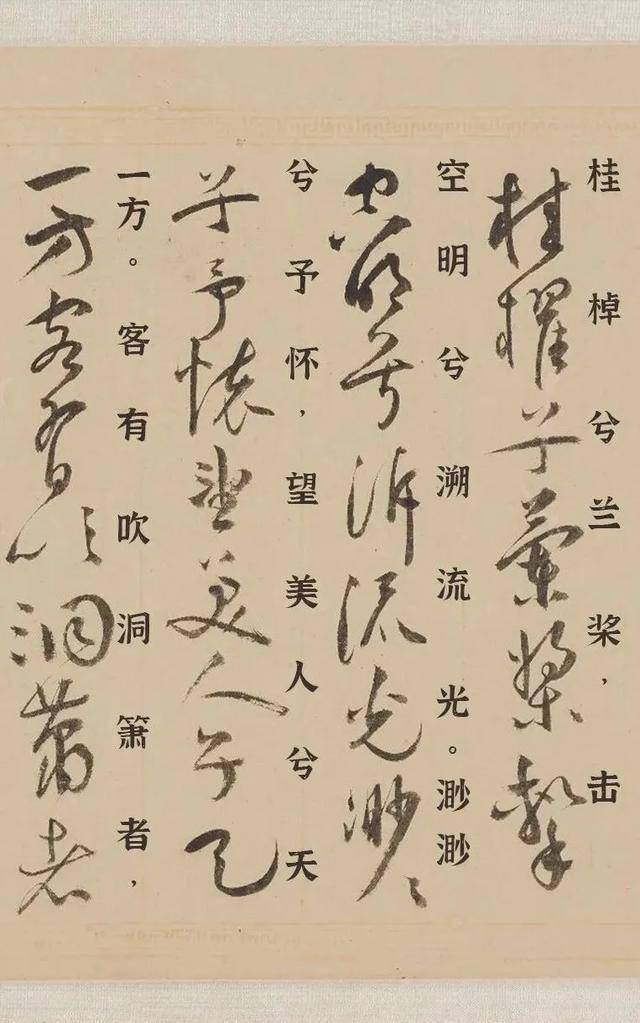 桂棹兮兰桨，击
桂櫂兮蘭槳擊
空明兮溯流光。渺渺
空明兮泝流光渺〻
兮予怀，望美人兮天
兮予懷望美人兮天
一方。客有吹洞箫者，
一方客有吹洞簫者